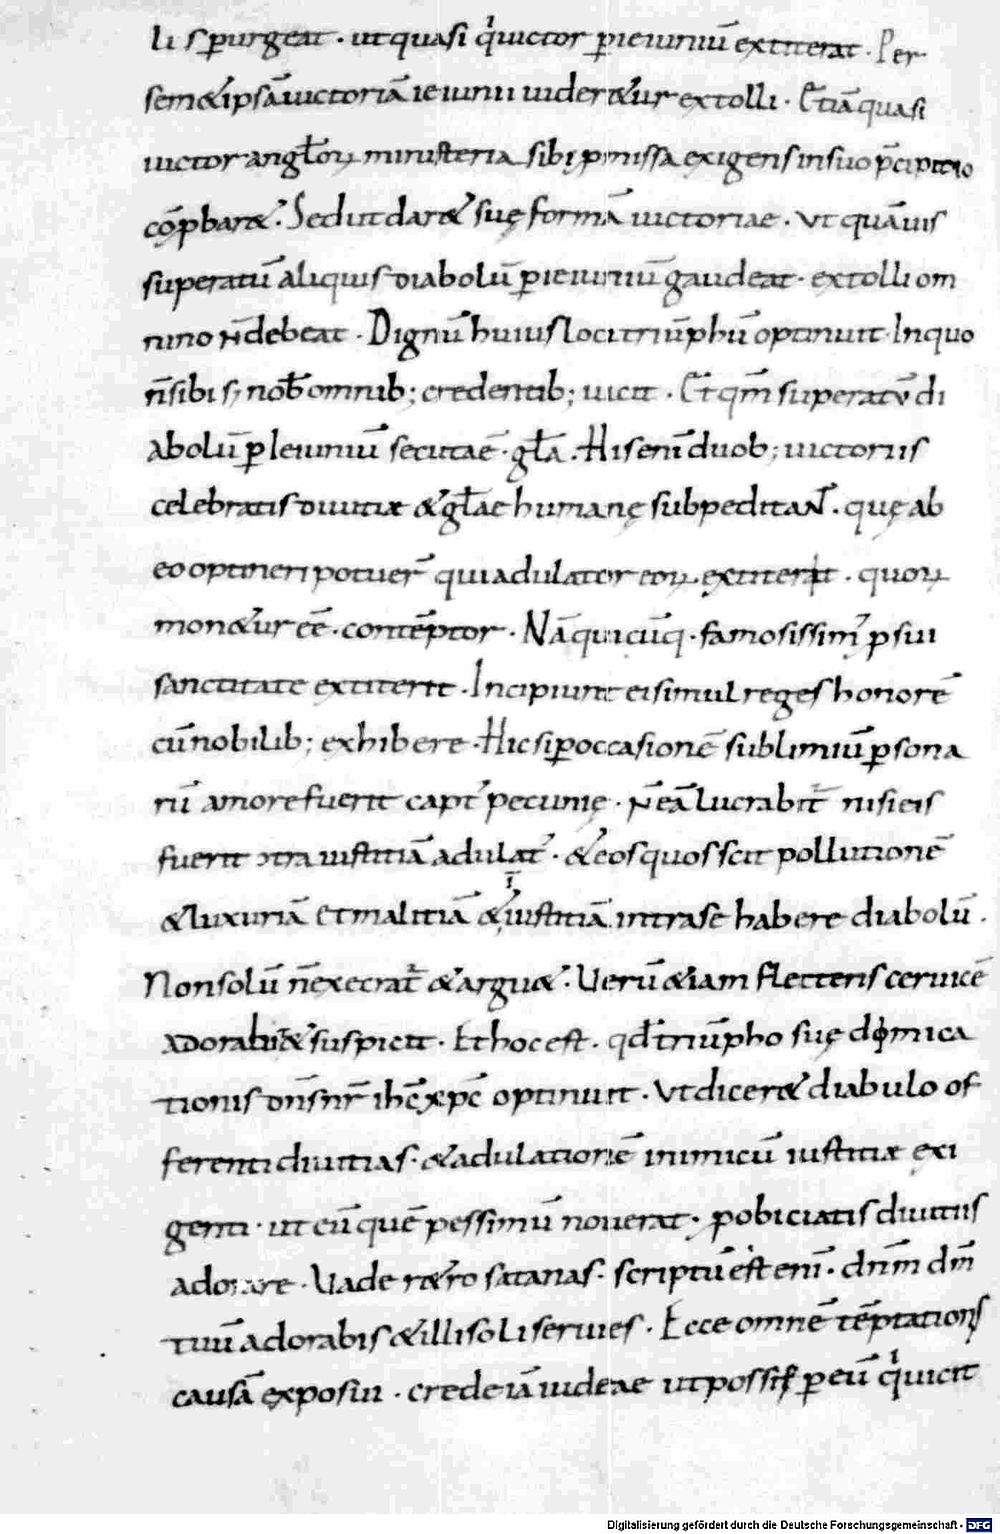 li spurgeat · ut quasi q̇uictor ꝑieiuniū extiterat · Per
sem&ipsā uictoriā ieiunii uider&ur extolli · Etiā quasi
uictor angl̄oꝝ ministeria sibi ꝓmissa exigens in suo p̄cipitio
cōpbar& · Sed ut dar& suę formā uictoriae · Ut quāuis
superatū aliquis diabolū ꝑieiuniū gaudeat · extolli om
nino n̄debeat · Dignū huius loci triūphū optinuit · In quo
n̄sibi s; nob̄ omnib; credentib; uicit · Et qm̄ superatū di
abolū ꝑ Ieiuniū secutaē · gl̄a · His eni duob; uictoriis
celebratis diuitiæ &gl̄ae humanę subpeditaɴt̄ · quę ab
eo optineri potuer̄ qui adulator eoꝝ extiterit · quoꝝ
mon&ur eē · contēptor · Nā quicūq · famosissim' ꝓ sui
sanctitate extiterit · Incipiunt ei simul reges honorē
cū nobilib; exhibere · Hic si ꝑ occasionē sublimiū ꝑsona
rū amore fuerit capt' pecunię · N̄ eā lucrabit̄ nisi eis
fuerit ɔtra iustitiā adulat' · &eos quos scit pollutionē
&luxuriā et malitiā &iīustitiā intra se habere diabolū ·
Non solū n̄execrat̄ &argu& · Uerū &iam flectens ceruicē
suspicit · Et hoc est · qd̄ triūpho suę dimica
tionis dn̄s nr̄ ihc̄ xpc̄ optinuit · Ut dicer& diabulo of
ferenti diuitias · &adulationē inimicū iustitiæ exi
genti · ut eū quē pessimū nouerat · ꝓ obiciatis diuitiis
adorare · Uade r&ro satanas · scriptū est eni · dn̄m dm̄
tuū adorabis &illi soli seruies · Ecce omnē tēptationis
causā exposui · crede iā iudeae ut possis ꝑ eū q̇ uicit
Digitalisierung gefördert durch die Deutsche Forschungsgemeinschaft - DFG